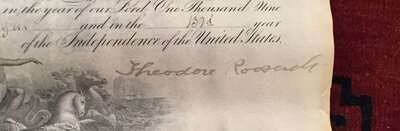 in the year of our Lord One Thousand Nine
and in the 13 year
of the Independence of the United States.
Theodore Roosevelt